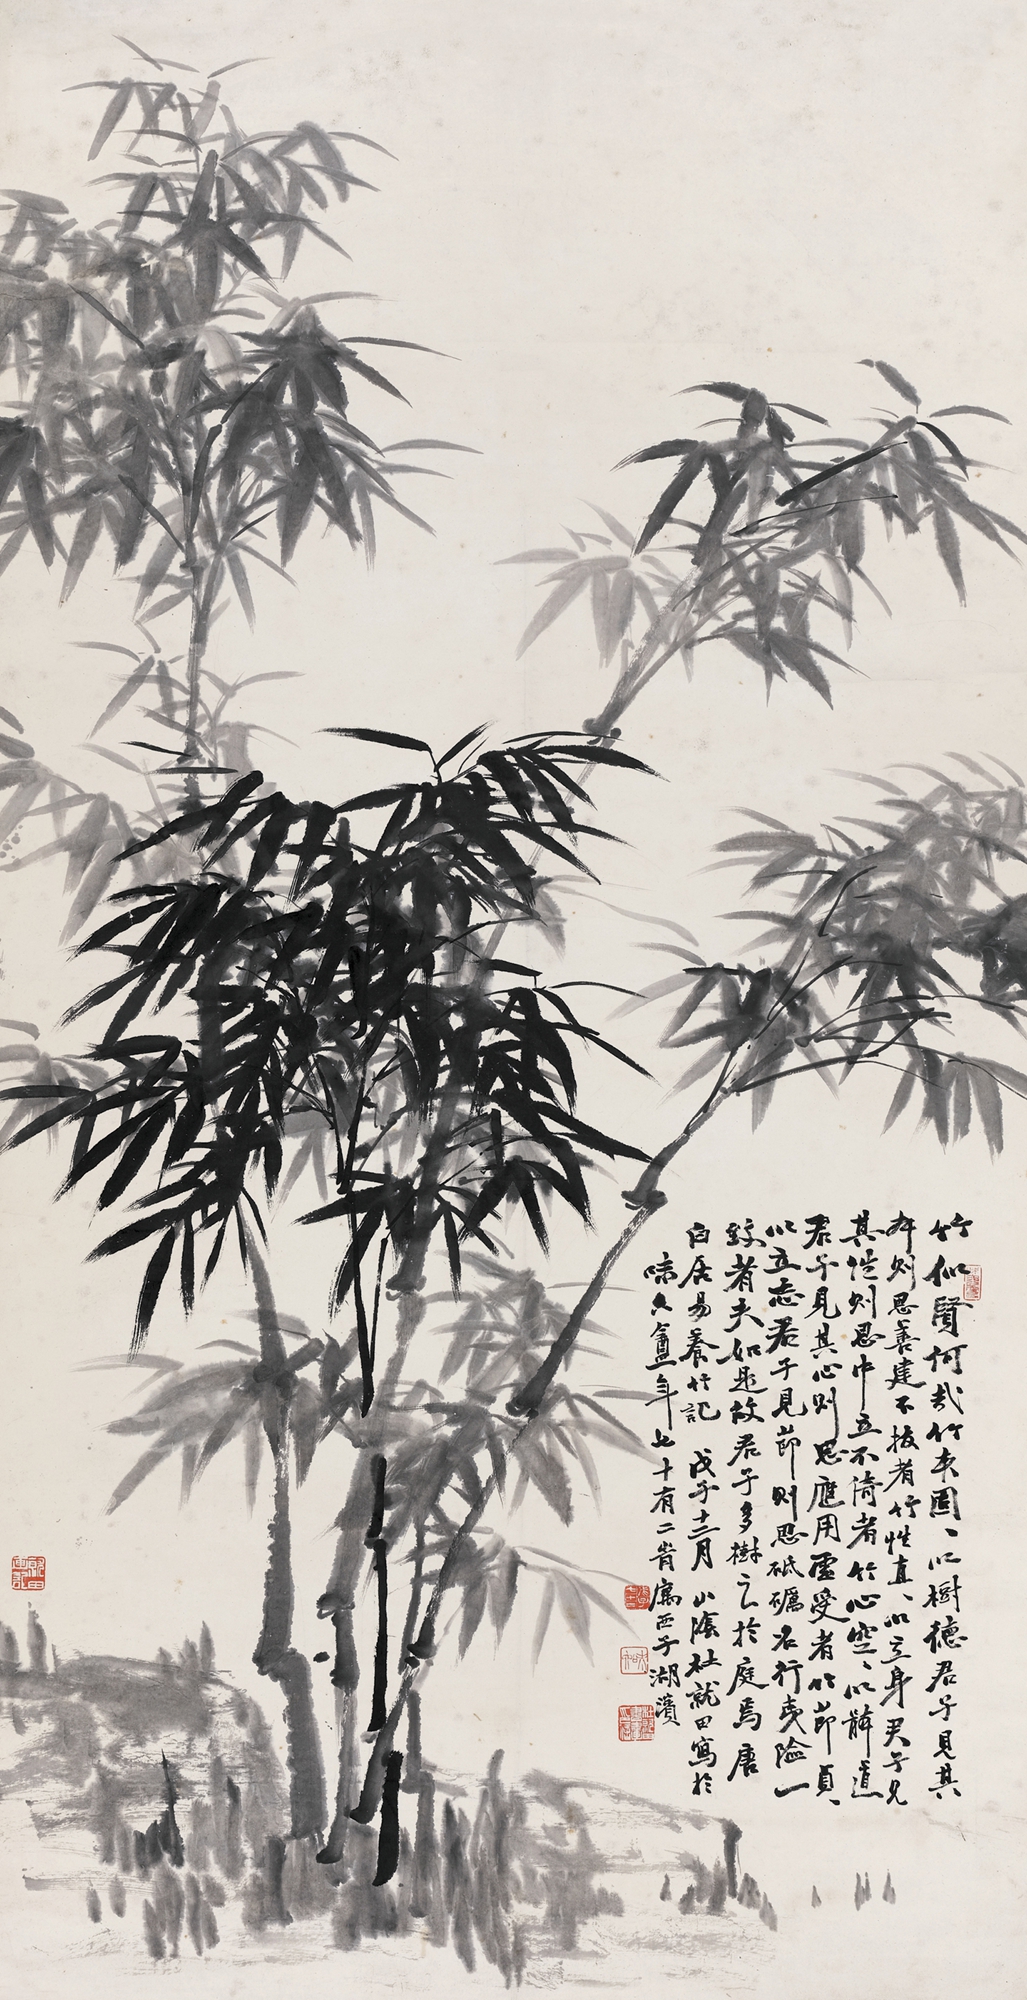 竹似賢何哉竹本固〻以樹德君子見其
本則思善建不拔者竹性直〻以立身君子見
其性則思中立不倚者竹心空〻以體道
君子見其心則思應用虛受者竹節貞〻
以立志君子見節則思砥礪名行夷險一
致者夫如是故君子多樹之於庭焉唐
白居易養竹記 戊子十二月 山陰杜就田寫於
味六盦年七十有二者寓西子湖濱